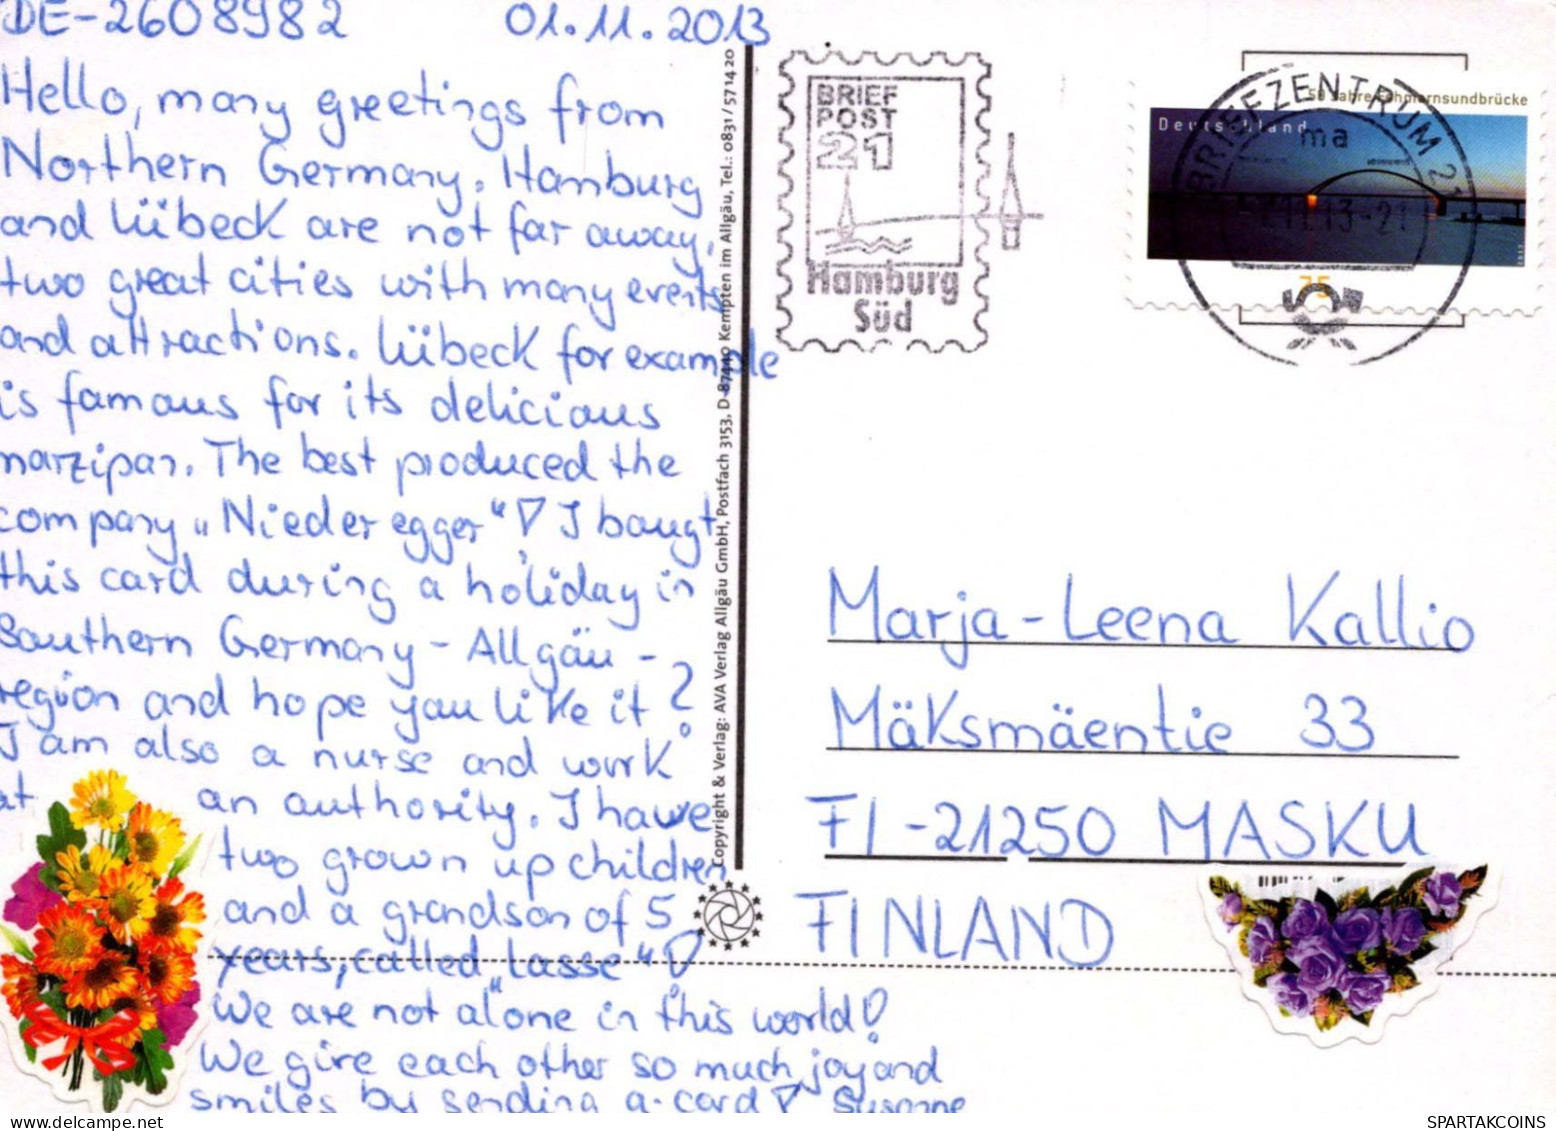 DE-2608982 01.11.2013
Hello, many greetings from
Northern Germany. Hamburg
and Lübeck are not far away,
two great cities with many events
and attractions. Lübeck for example
is famous for its delicious
marzipan. The best produced the
company „Niederegger“! I baugt
this card during a holiday in
Southern Germany - Allgäu -
region and hope you like it?
I am also a nurse and work
at an authority. I have
two grown up children
and a grandson of 5
years, called „Lasse“!
We are not alone in this world!
We give each other so much joy and
smiles by sending a card! Susanne
Copyright & Verlag: AVA Verlag Allgäu GmbH, Postfach 3153, D-87440 Kempten im Allgäu, Tel.: 0831 / 571420
BRIEF
POST
21
Hamburg
Süd
50 Jahre Fehmarnsundbrücke
Deutschland
75
BRIEFZENTRUM 21
ma
Marja-Leena Kallio
Mäksmäentie 33
FI-21250 MASKU
FINLAND
hobby.ws
SPARTAKCOINS